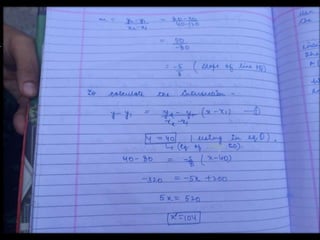 m = y2-y1 / x2-x1 = 80-30 / 40-120
= 50 / -80
= -5/8 (slope of line
To calculate the intersection -
y-y1 = y2-y1 / x2-x1 (x-x1) —①
y = 40 ( using in eq ①)
(eq of
40-80 = -5/8 (x-40)
-320 = -5x + 200
5x = 520
x = 104